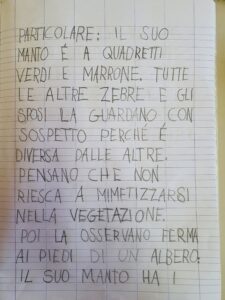 PARTICOLARE: IL SUO
MANTO É A QUADRETTI
VERDI E MARRONE. TUTTE
LE ALTRE ZEBRE E GLI
SPOSI LA GUARDANO CON
SOSPETTO PERCHÉ É
DIVERSA DALLE ALTRE.
PENSANO CHE NON
RIESCA A MIMETIZZARSI
NELLA VEGETAZIONE.
POI LA OSSERVANO FERMA
AI PIEDI DI UN ALBERO:
IL SUO MANTO HA I